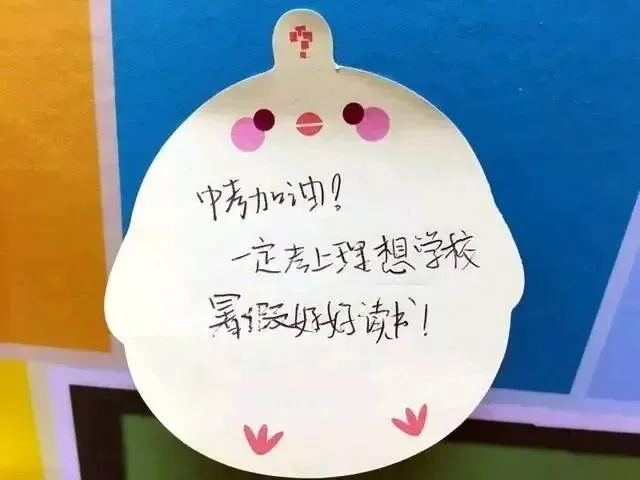 中考加油！
一定考上理想学校
暑假好好读书！